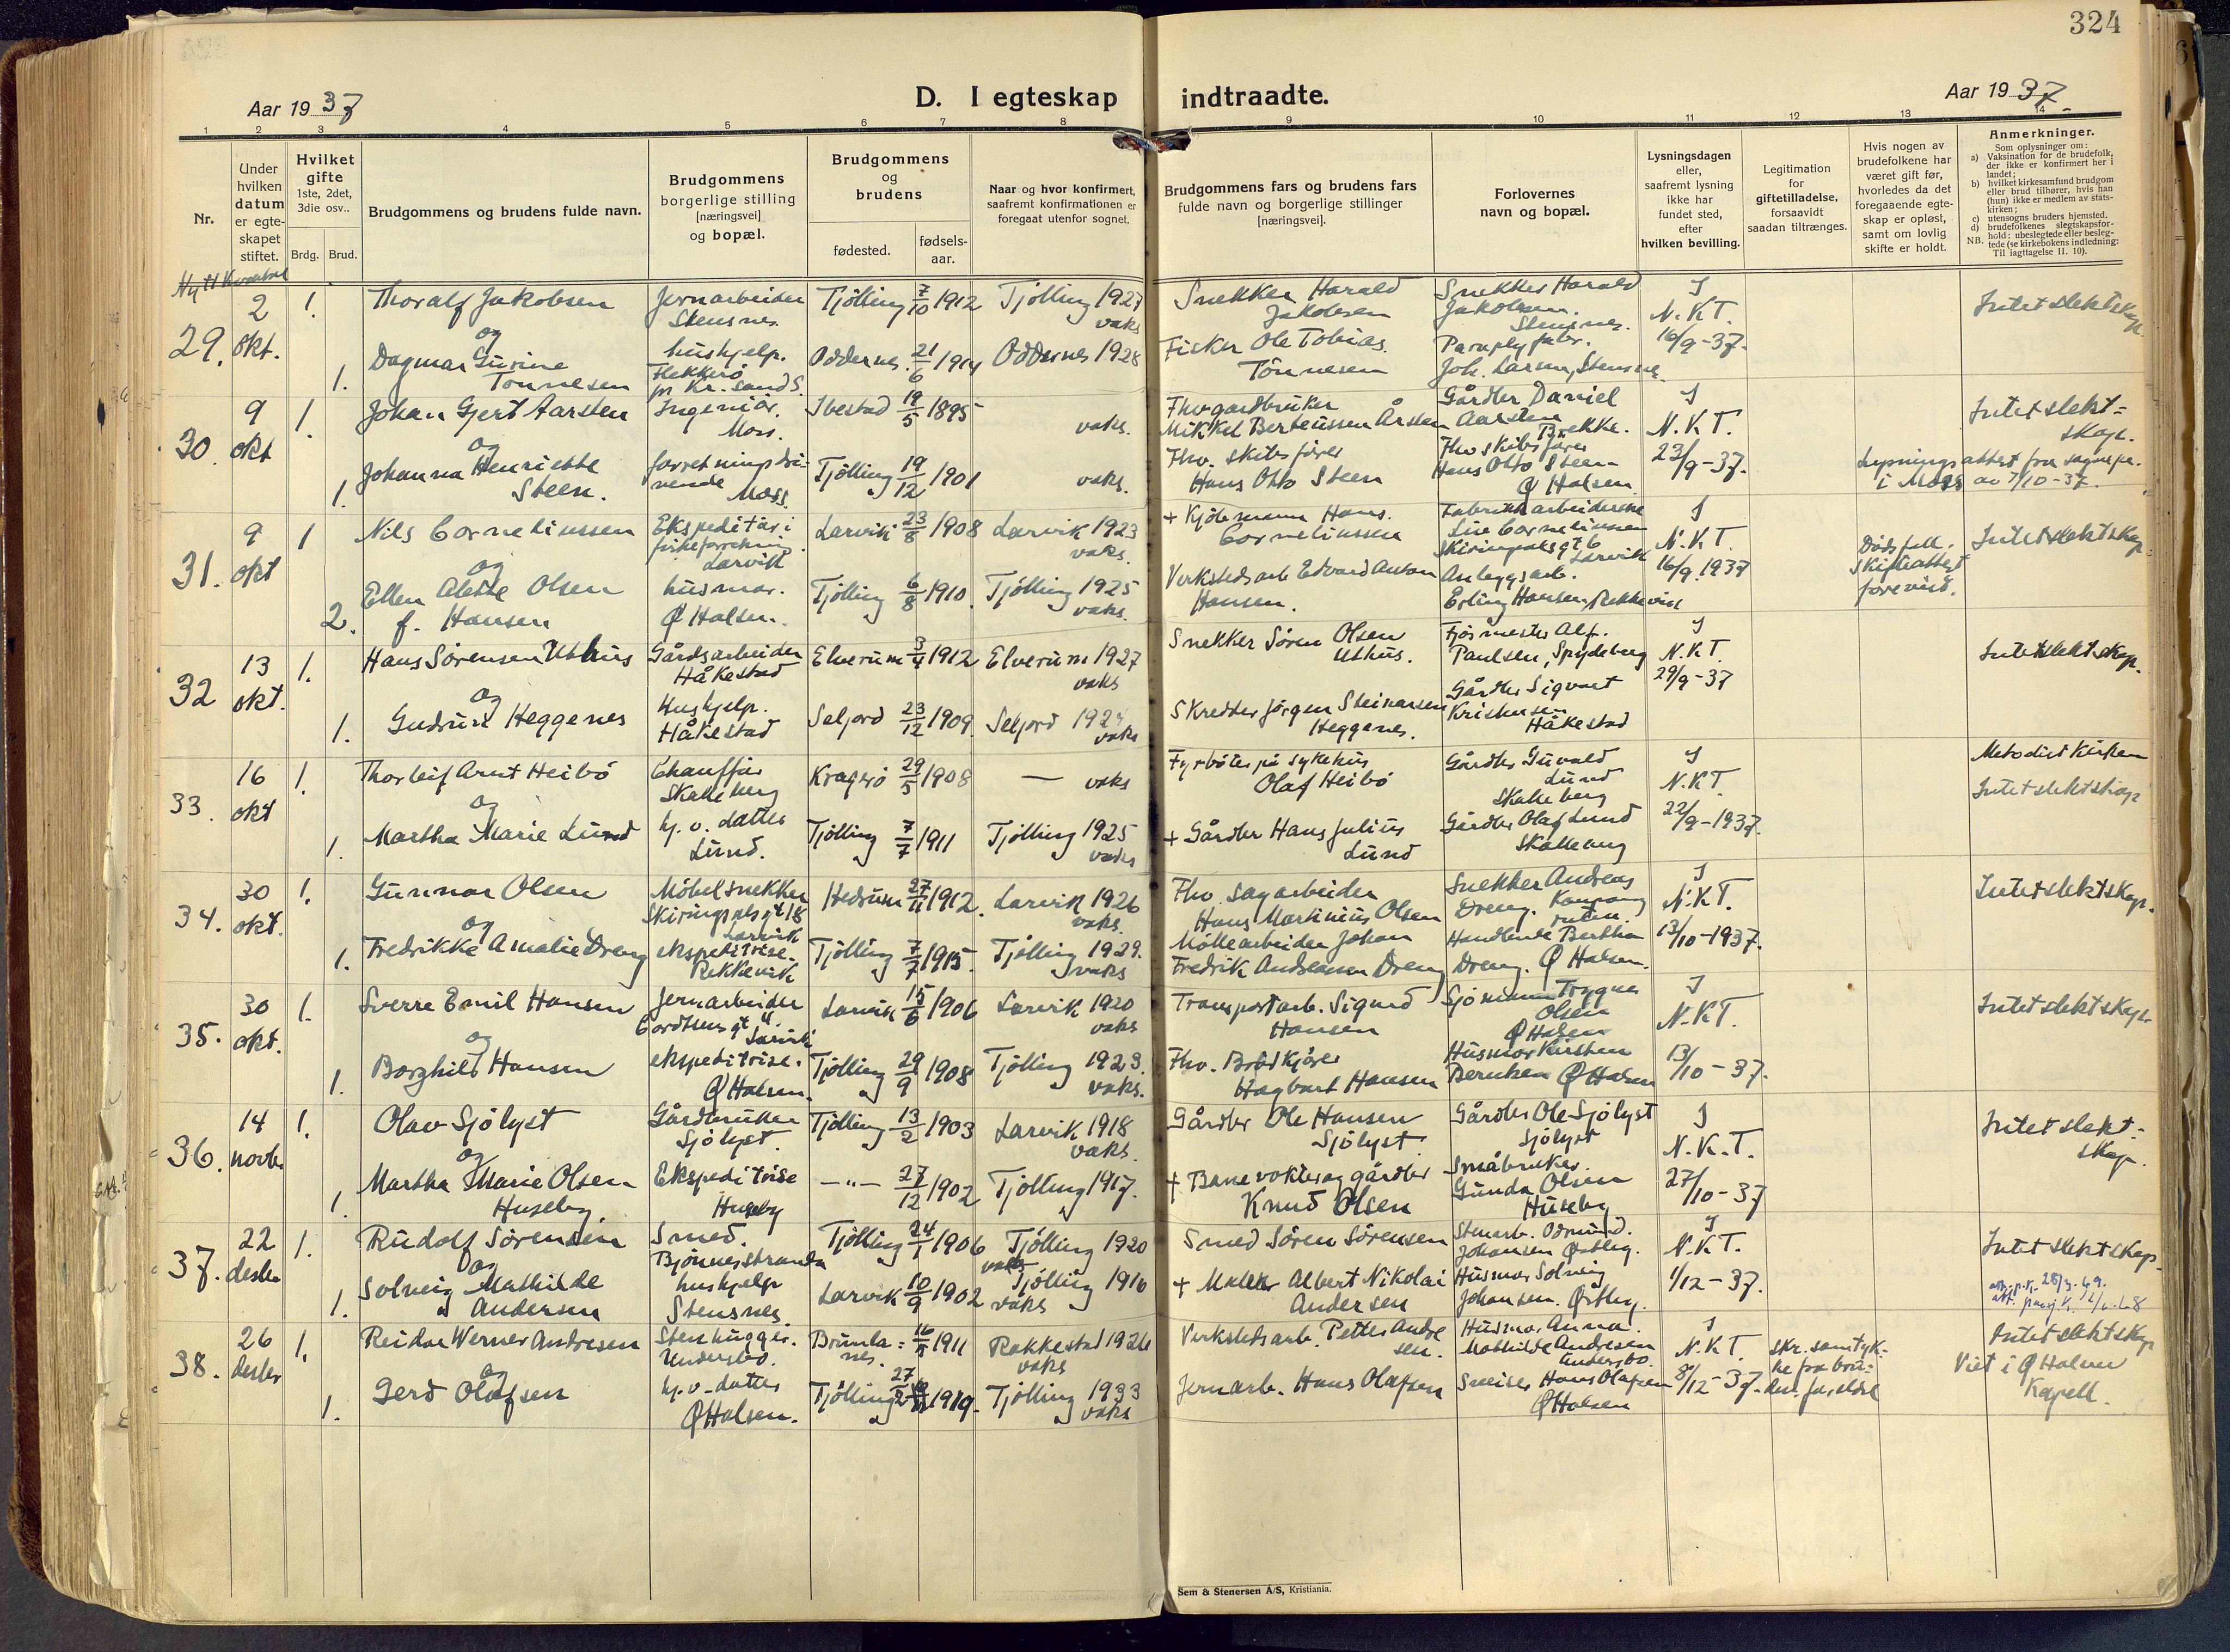 324
Aar 1937
D. I egteskap indtraadte.
Aar 1937.
1 2 3 4 5 6 7 8 9 10 11 12 13 14
Nr.
Under
hvilken
datum
er egte-
skapet
stiftet.
Hvilket
gifte
1ste, 2det,
3die osv..
Brdg. Brud.
Brudgommens og brudens fulde navn.
Brudgommens
borgerlige stilling
[næringsvei]
og bopæl.
Brudgommens
og
brudens
fødested.
fødsels-
aar.
Naar og hvor konfirmert,
saafremt konfirmationen er
foregaat utenfor sognet.
Brudgommens fars og brudens fars
fulde navn og borgerlige stillinger
[næringsvei].
Forlovernes
navn og bopæl.
Lysningsdagen
eller,
saafremt lysning
ikke har
fundet sted,
efter
hvilken bevilling.
Legitimation
for
giftetilladelse,
forsaavidt
saadan tiltrænges.
Hvis nogen av
brudefolkene har
været gift før,
hvorledes da det
foregaaende egte-
skap er opløst,
samt om lovlig
skifte er holdt.
Anmerkninger.
Som oplysninger om:
a) Vaksination for de brudefolk,
der ikke er konfirmert her i
landet;
b) hvilket kirkesamfund brudgom
eller brud tilhører, hvis han
(hun) ikke er medlem av stats-
kirken;
c) utensogns bruders hjemsted.
d) brudefolkenes slegtskapsfor-
hold: ubeslegtede eller besleg-
NB. tede (se kirkebokens indledning:
Til iagttagelse II. 10).
29. 2 okt. 1.
Thoralf Jakobsen
Jernarbeider
Stensnes.
Tjølling 7/10 1912
Tjølling 1927
vaks
Snekker Harald
Jakobsen
Snekker Harald
Jakobsen.
Stensnes.
I
N.K.T.
16/9-37.
Intet slektskap.
og
1.
Dagmar Gurine
Tønnesen
hushjelp.
Flekkerö
pr Kr. sand S.
Oddernes. 21/6 1914
Oddernes 1928
Fisker Ole Tobias
Tönnesen
Paraplyfabr.
Joh. Larsen, Stensnes.
30. 9 okt 1.
Johan Gjert Aarsten
Ingeniör.
Moss.
Ibestad 19/5 1895
vaks.
Fhv gardbruker
Mikkel Berteussen Årsten
Gårdbr Daniel
Aarsten
Brekke.
I
N.K.T.
23/9-37.
Intet slekt-
skap.
og
1.
Johanna Henriette
Steen.
forretningsdri-
vende
Moss.
Tjölling 19/12 1901
vaks.
Fhv. skibsfører
Hans Otto Steen
Fhv skibsfører
Hans Otto Steen
Ø Halsen.
Lysningsattest fra sognepr.
i Moss av 7/10-37.
31. 9 okt 1
Nils Corneliussen
Ekspeditör i
fiskeforretning.
Larvik
Larvik 23/8 1908
Larvik 1923
vaks.
+ Kjöbmann Hans.
Corneliussen
Fabrikkarbeiderske
Corneliussen
Skiringsalsgt 6
Larvik
I
N.K.T.
16/9.1937
Dödsfall.
Skifteattest
forevist.
Intet slektskap
og
2.
Ellen Alette Olsen
f. Hansen
husmor.
Ø Halsen.
Tjölling 6/8 1910.
Tjölling 1925
vaks.
Verkstedsarb Edvard Anton
Hansen.
Anleggsarb.
Erling Hansen, Rekkevik
32 13 okt. 1.
Hans Sörensen Uthus
Gårdsarbeider
Håkestad
Elverum 3/4 1912
Elverum 1927
vaks
Snekker Sören Olsen
Uthus.
Fjösmester Alf.
Paulsen, Spydeberg
I
N.K.T.
29/9-37
Intet slektskap.
og
1.
Gudrun Heggenes
Hushjelp.
Håkestad
Seljord 23/12 1909.
Seljord
vaks
Skredder Jörgen Steinarsen
Heggenes.
Gårdbr Sigvart
Kristensen
Håkestad
33. 16 okt 1.
Thorleif Arnt Heibö
Chauffør
Skalleberg
Kragerö 29/5 1908
— vaks
Fyrböter på sykehus
Olaf Heibö
Gårdbr Guvald
Lund
Skalleberg
I
N.K.T.
22/9-1937.
Metodistkirken
Intet slektskap
og
1.
Martha Marie Lund
hj. v. datter
Lund.
Tjölling 7/7 1911
Tjölling 1925
vaks
+ Gårdbr Hans Julius
Lund
Gårdbr Olaf Lund
Skalleberg
34. 30 okt. 1.
Gunnar Olsen
Möbelsnekker
Skiringsalsgt 18
Larvik
Hedrum 27/11 1912.
Larvik 1926
vaks.
Fhv. sagarbeider
Hans Martinius Olsen
Snekker Andreas
Dreng.
I
N.K.T.
13/10-1937.
Intet slektskap.
og
1.
Fredrikke Amalie Dreng
ekspeditrise.
Rekkevik
Tjölling 7/7 1915.
Tjölling 1929.
vaks
Möllearbeider Johan
Fredrik Andreassen Dreng
Handlende Bertha
Dreng. Ø Halsen.
35. 30 okt. 1.
Sverre Emil Hansen
Jernarbeider
Larvik
Larvik 15/6 1906
Larvik 1920
vaks
Transportarb. Sigurd
Hansen
Sjömann Trygve
Olsen
Ø Halsen
I
N.K.T.
13/10-37.
Intet slektskap.
og
1.
Borghild Hansen
ekspeditrise.
Ø Halsen.
Tjölling 29/9 1908
Tjölling 1923.
vaks.
Fhv. Brödkjörer
Hagbart Hansen
Husmor Kirsten
Berntsen Ø Halsen
36. 14 novbr 1.
Olav Sjölyst
Gårdbruker
Sjölyst.
Tjölling 13/2 1903
Larvik 1918
vaks.
Gårdbr Ole Hansen
Sjölyst.
Gårdbr Ole Sjölyst
Sjölyst
I
N.K.T.
27/10-37
Intet slekt-
skap.
og
1.
Martha Marie Olsen
Huseby.
Ekspeditrise
Huseby
—"— 27/12 1902
Tjölling 1917.
+ Banevokter og gårdbr
Knud Olsen
Småbruker.
Gunda Olsen
Huseby
37. 22 desbr 1.
Rudolf Sörensen
Smed.
Bjönnesstranda
Tjölling 24/1 1906
Tjölling 1920
vaks
Smed Sören Sörensen
Stenarb. Odmund.
Johansen Østby.
I
N.K.T.
1/12-37.
Intet slektskap.
og
1.
Solveig Mathilde
Andersen
hushjelp
Stensnes.
Larvik 10/9 1902
Tjölling 1916
vaks
+ Maler Albert Nikolai
Andersen
Husmor Solveig
Johansen. Østby.
38. 26 desbr 1.
Reidar Werner Andresen
Stenhugger.
Undersbo.
Brunla-
nes. 1911
Rakkestad 1926
vaks
Verkstedsarb. Petter Andre
sen.
Husmor Anna.
Mathilde Andresen
Undersbo.
I
N.K.T.
8/12-37.
Skr. samtyk-
ke fra bru-
dens foreldre
Intet slektskap
Viet i Ø Halsen
Kapell.
og
1.
Gerd Olafsen
hj. v. datter
Ø Halsen.
Tjölling 1919.
Tjölling 1933
vaks
Jernarb. Hans Olafsen
Sveiser Hans Olafsen
Ø Halsen
Sem & Stenersen A/S, Kristiania.